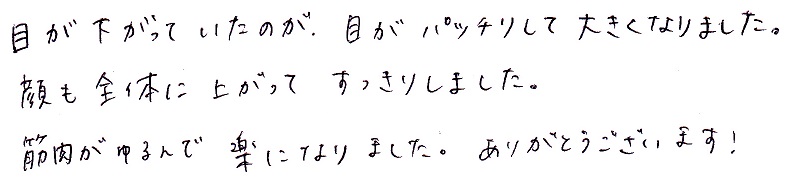 目が下がっていたのが、目がパッチリして大きくなりました。
顔も全体に上がってすっきりしました。
筋肉がゆるんで楽になりました。ありがとうございます!